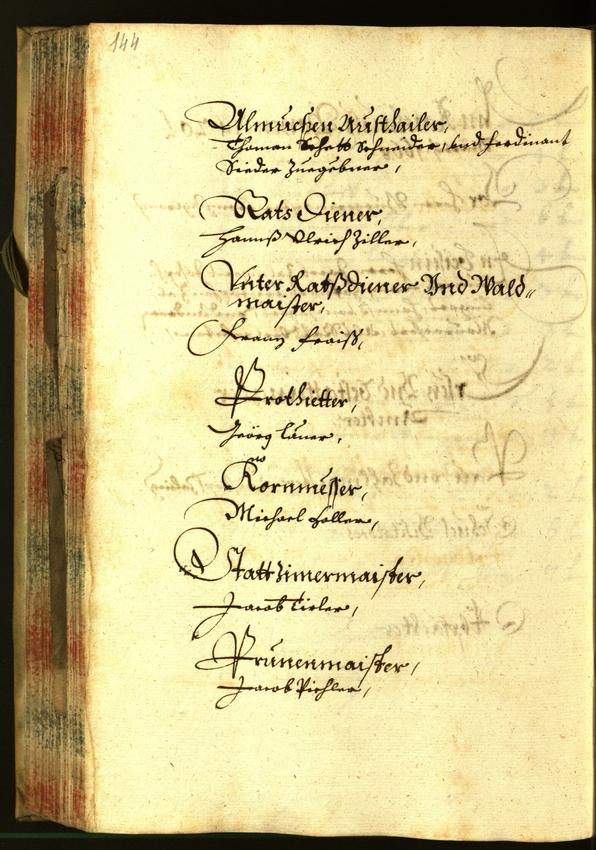 144
Almuesen Austhailer,
Thoman Schett Schneider, und Ferdinant
Sieder Zuegebner,
Rats Diener,
Hannß Ulrich Ziller,
Unter Ratßdiener Und Wald=
maister,
Franz Fraiß,
Prothietter,
Geörg Lauer,
Kornmesser,
Michael Holler,
Stattzimermaister,
Jacob Tirler,
Prunenmaister,
Jacob Pichler,